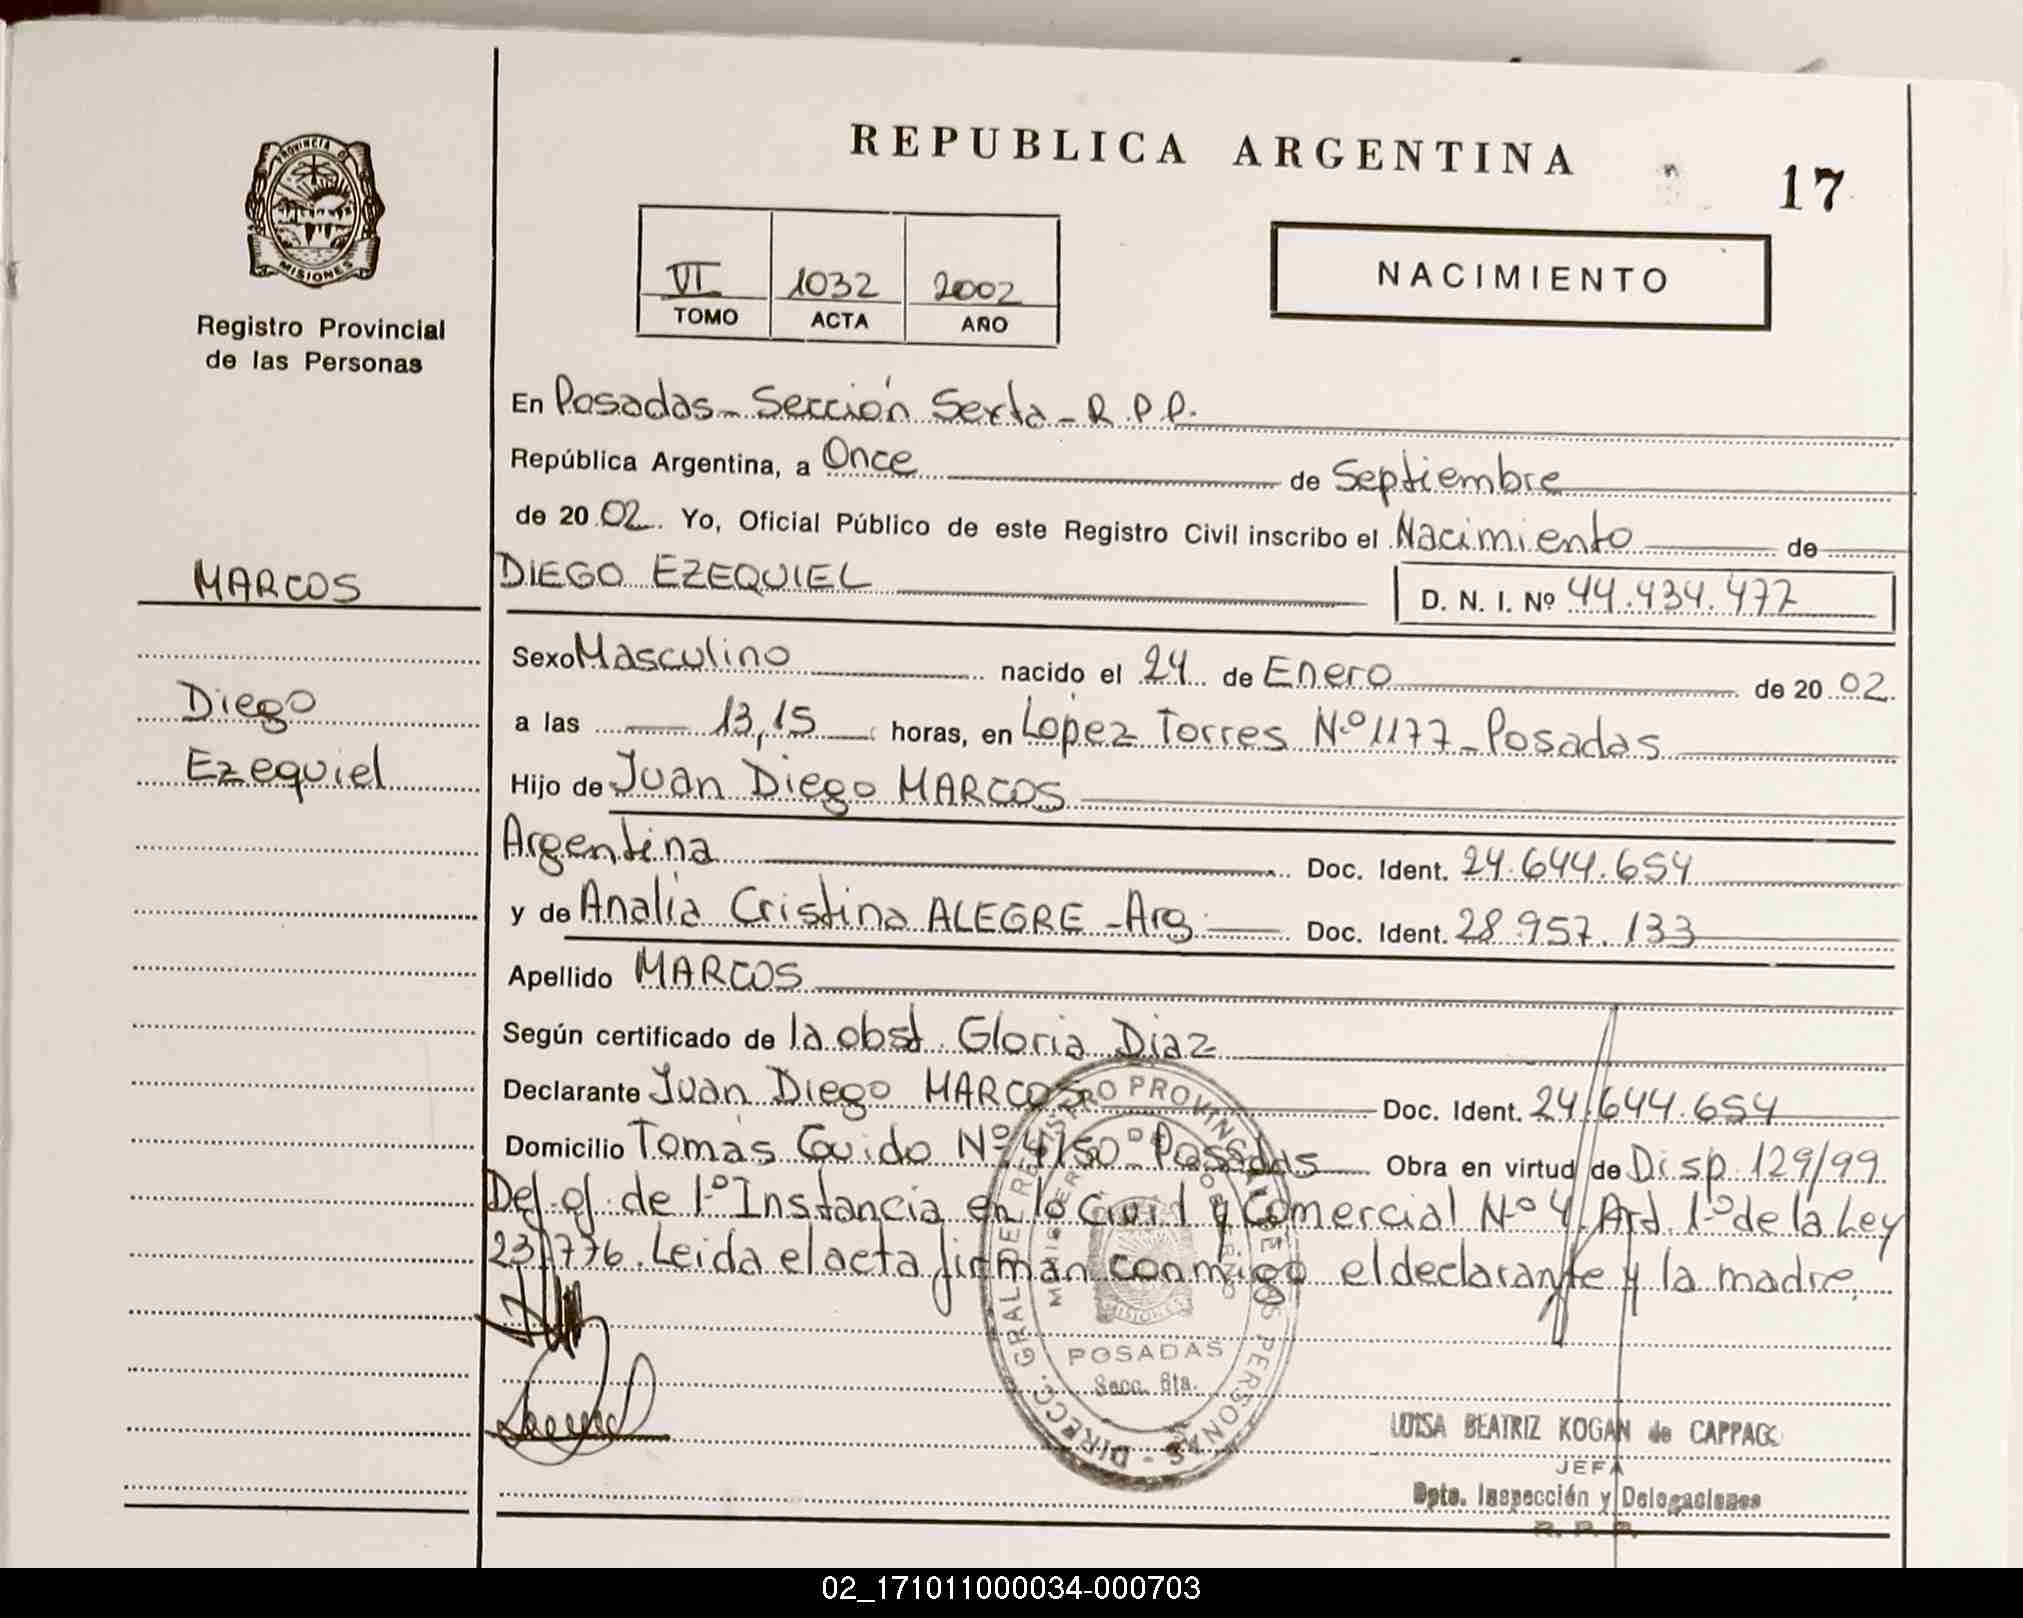 REPUBLICA ARGENTINA
17
PROVINCIA DE
MISIONES
Registro Provincial
de las Personas
VI 1032 2002
TOMO ACTA AÑO
NACIMIENTO
En Posadas - Sección Sexta - R.P.P.
República Argentina, a Once de Septiembre
de 20 02. Yo, Oficial Público de este Registro Civil inscribo el Nacimiento de
MARCOS
DIEGO EZEQUIEL D. N. I. Nº 44.434.477
Sexo Masculino nacido el 24 de Enero de 20 02.
Diego
a las 13,15 horas, en López Torres Nº 1177 - Posadas
Ezequiel
Hijo de Juan Diego MARCOS
Argentina Doc. Ident. 24.644.654
y de Analía Cristina ALEGRE - Arg. Doc. Ident. 28.957.133
Apellido MARCOS
Según certificado de la obst. Gloria Diaz
Declarante Juan Diego MARCOS Doc. Ident. 24.644.654
Domicilio Tomás Guido Nº 4750 - Posadas Obra en virtud de Disp. 129/99
Def. of. de 1º Instancia en lo Civil y Comercial Nº 4 Art. 1º de la Ley
23.776. Leida el acta firman conmigo el declarante y la madre.
DIRECC. GRAL. DE REGISTRO PROVINCIAL DE LAS PERSONAS
MINISTERIO DE GOBIERNO
MISIONES
POSADAS
Secc. 6ta.
LUISA BEATRIZ KOGAN de CAPPAGO
JEFA
Dpto. Inspección y Delegaciones
R. P. P.
02_171011000034-000703